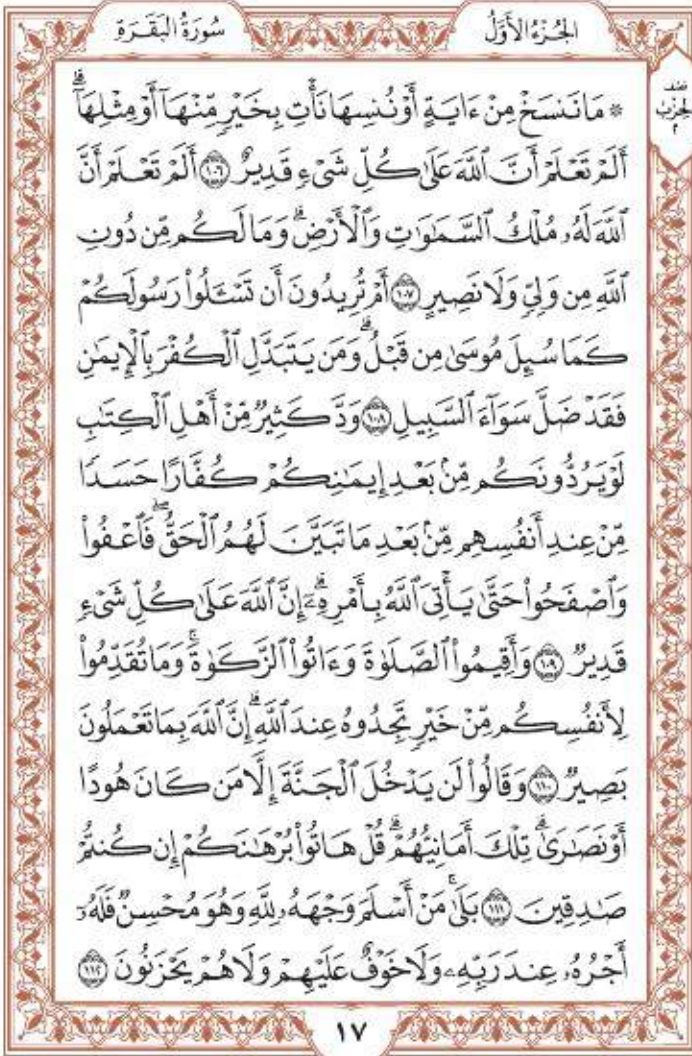 سُورَةُ الْبَقَرَةِ الجُزْءُ الأَوَّلُ
نصف الحزب ٢
۞ مَا نَنسَخْ مِنْ ءَايَةٍ أَوْ نُنسِهَا نَأْتِ بِخَيْرٍ مِّنْهَآ أَوْ مِثْلِهَآ ۗ
أَلَمْ تَعْلَمْ أَنَّ ٱللَّهَ عَلَىٰ كُلِّ شَىْءٍ قَدِيرٌ ١٠٦ أَلَمْ تَعْلَمْ أَنَّ
ٱللَّهَ لَهُۥ مُلْكُ ٱلسَّمَٰوَٰتِ وَٱلْأَرْضِ ۗ وَمَا لَكُم مِّن دُونِ
ٱللَّهِ مِن وَلِىٍّ وَلَا نَصِيرٍ ١٠٧ أَمْ تُرِيدُونَ أَن تَسْـَٔلُوا۟ رَسُولَكُمْ
كَمَا سُئِلَ مُوسَىٰ مِن قَبْلُ ۗ وَمَن يَتَبَدَّلِ ٱلْكُفْرَ بِٱلْإِيمَٰنِ
فَقَدْ ضَلَّ سَوَآءَ ٱلسَّبِيلِ ١٠٨ وَدَّ كَثِيرٌ مِّنْ أَهْلِ ٱلْكِتَٰبِ
لَوْ يَرُدُّونَكُم مِّنۢ بَعْدِ إِيمَٰنِكُمْ كُفَّارًا حَسَدًا
مِّنْ عِندِ أَنفُسِهِم مِّنۢ بَعْدِ مَا تَبَيَّنَ لَهُمُ ٱلْحَقُّ ۖ فَٱعْفُوا۟
وَٱصْفَحُوا۟ حَتَّىٰ يَأْتِىَ ٱللَّهُ بِأَمْرِهِۦٓ ۗ إِنَّ ٱللَّهَ عَلَىٰ كُلِّ شَىْءٍ
قَدِيرٌ ١٠٩ وَأَقِيمُوا۟ ٱلصَّلَوٰةَ وَءَاتُوا۟ ٱلزَّكَوٰةَ ۚ وَمَا تُقَدِّمُوا۟
لِأَنفُسِكُم مِّنْ خَيْرٍ تَجِدُوهُ عِندَ ٱللَّهِ ۗ إِنَّ ٱللَّهَ بِمَا تَعْمَلُونَ
بَصِيرٌ ١١٠ وَقَالُوا۟ لَن يَدْخُلَ ٱلْجَنَّةَ إِلَّا مَن كَانَ هُودًا
أَوْ نَصَٰرَىٰ ۗ تِلْكَ أَمَانِيُّهُمْ ۗ قُلْ هَاتُوا۟ بُرْهَٰنَكُمْ إِن كُنتُمْ
صَٰدِقِينَ ١١١ بَلَىٰ ۚ مَنْ أَسْلَمَ وَجْهَهُۥ لِلَّهِ وَهُوَ مُحْسِنٌ فَلَهُۥٓ
أَجْرُهُۥ عِندَ رَبِّهِۦ وَلَا خَوْفٌ عَلَيْهِمْ وَلَا هُمْ يَحْزَنُونَ ١١٢
١٧